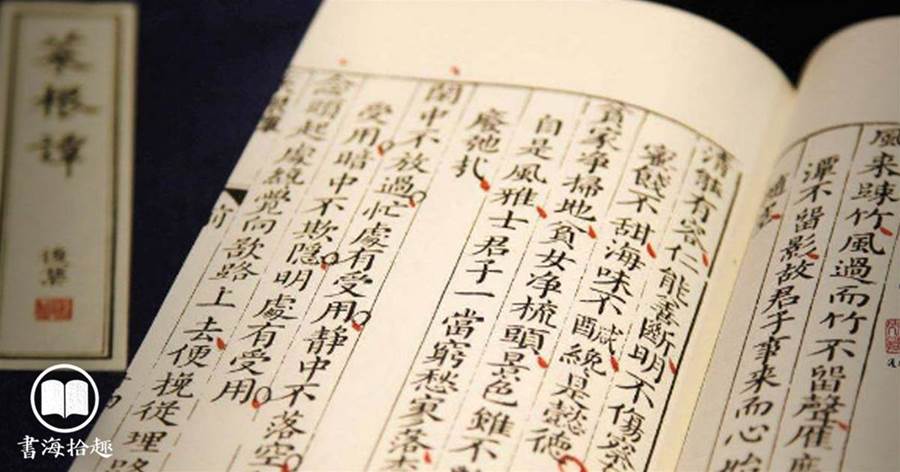 風来踈竹風過而竹不留聲雁度
潭不留影故君子事来而心始
清能有容仁能善斷明不傷察
蜜餞不甜海味不醎纔是懿德
貧家淨掃地貧女淨梳頭景色雖不
自是風雅士君子一當窮愁寥落
廢弛
閒中不放過忙處有受用静中不落空
受用暗中不欺隱明處有受用
念頭起處纔覺向欲路上去便挽從理路
前
菜根譚
後集
書海拾趣